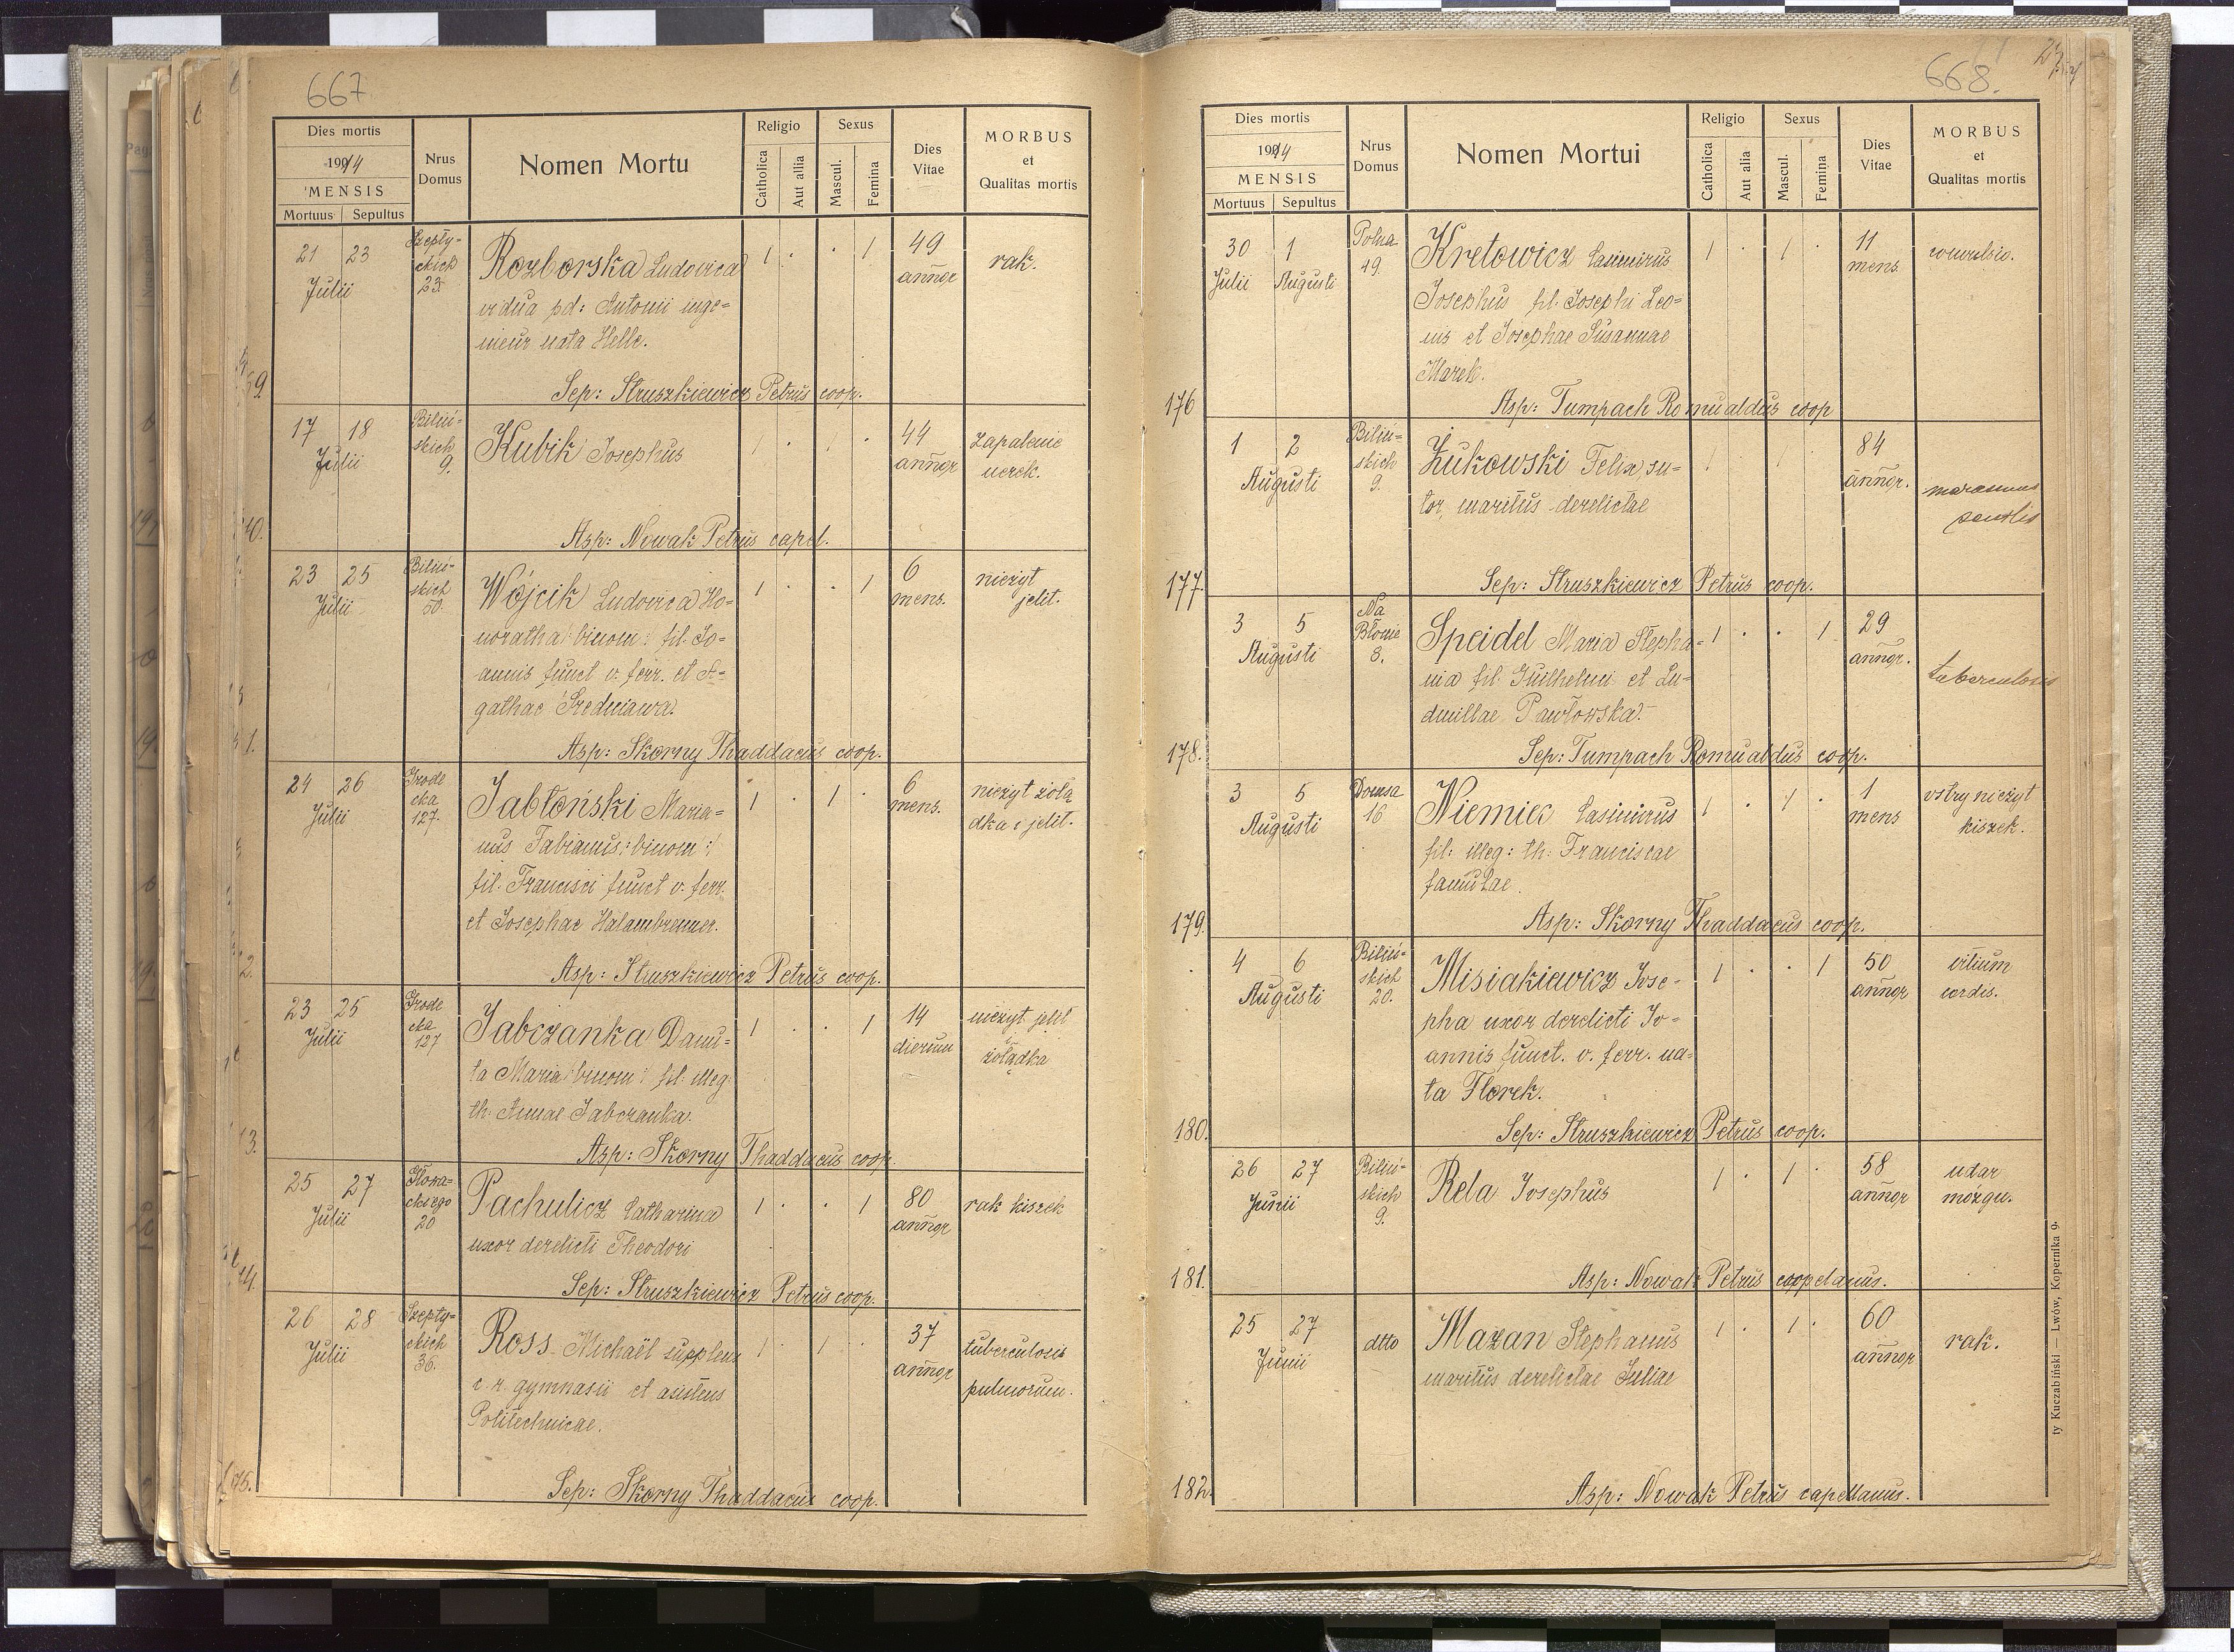 667
Dies mortis
1914
MENSIS
Mortuus Sepultus
Nrus Domus
Nomen Mortu
Religio
Catholica
Aut alia
Sexus
Mascul.
Femina
Dies Vitae
MORBUS
et
Qualitas mortis
21 23 Julii
Szepty-
ckich
23.
Rozborska Ludovica
vidua pd: Antonii inge-
nieur nata Helle.
1 . . 1
49
annor
rak.
Sep: Struszkiewicz Petrus coop.
17 18 Julii
Biliń-
skich
9.
Kubik Josephus
1 . 1 .
44
annor
zapalenie
nerek.
Asp: Nowak Petrus capel.
23 25 Julii
Biliń-
skich
50.
Wójcik Ludovica Ho-
noratha binom: fil. Jo-
annis funct v. ferr. et A-
gathae Średniawa.
1 . . 1
6
mens.
nieżyt
jelit.
Asp: Skorny Thaddaeus coop.
24 26 Julii
Grode
cka
127.
Jabłoński Maria-
nus Fabianus: binom:
fil. Francisci funct v. ferr.
et Josephae Halambrenner.
1 . 1 .
6
mens.
nieżyt żołą
dka i jelit.
Asp: Struszkiewicz Petrus coop.
23 25 Julii
Grode
cka
127
Jabczanka Danu-
ta Maria binom: fil: illeg
th: Annae Jabczanka.
1 . . 1
14
dierum
nieżyt jelit
i
żołądka
Asp: Skorny Thaddaeus coop.
25 27 Julii
Głowa-
ckiego
20
Pachulicz Catharina
uxor derelicti Theodori
1 . . 1
80
annor
rak kiszek
Sep: Struszkiewicz Petrus coop.
26 28 Julii
Szepty-
ckich
36.
Ross Michaël supplens
c. r. gymnasii et asistens
Politechnicae.
1 . 1 .
37
annor
tuberculosis
pulmorum.
Sep: Skorny Thaddaeus coop.
668.
Dies mortis
1914
MENSIS
Mortuus Sepultus
Nrus Domus
Nomen Mortui
Religio
Catholica
Aut alia
Sexus
Mascul.
Femina
Dies Vitae
MORBUS
et
Qualitas mortis
30 1
Julii Augusti
Polna
49.
Kretowicz Casimirus
Josephus fil. Josephi Leo-
nis et Josephae Susannae
Marek.
1 . 1 .
11
mens.
convulsio.
176
Asp: Tumpach Romualdus coop
1 2
Augusti
Biliń-
skich
9.
Żukowski Felix, su-
tor, maritus derelictae
1 . 1 .
84
annor.
marasmus
senilis
177.
Sep: Struszkiewicz Petrus coop.
3 5
Augusti
Na
Błonie
8.
Speidel Maria Stepha-
nia fil. Guilhelmi et Lu-
dmillae Pawłowska.
1 . . 1
29
annor.
tuberculosis
178.
Sep: Tumpach Romualdus coop.
3 5
Augusti
Domsa
16
Niemiec Casimirus
fil: illeg: th: Franciscae
famulae.
1 . 1 .
1
mens
ostry nieżyt
kiszek.
179.
Asp: Skorny Thaddaeus coop.
4 6
Augusti
Biliń-
skich
20.
Misiakiewicz Jose-
pha uxor derelicti Jo-
annis funct. v. ferr. na-
ta Florek.
1 . . 1
50
annor
vitium
cordis.
180.
Sep: Struszkiewicz Petrus coop.
26 27
Junii
Biliń-
skich
9.
Rela Josephus
1 . 1 .
58
annor
udar
mózgu.
181.
Asp: Nowak Petrus coopelanus.
25 27
Junii
dtto
Mazan Stephanus
maritus derelictae Juliae
1 . 1 .
60
annor
rak.
182.
Asp: Nowak Petrus capellanus.
ty Kuczabiński — Lwów, Kopernika 9.